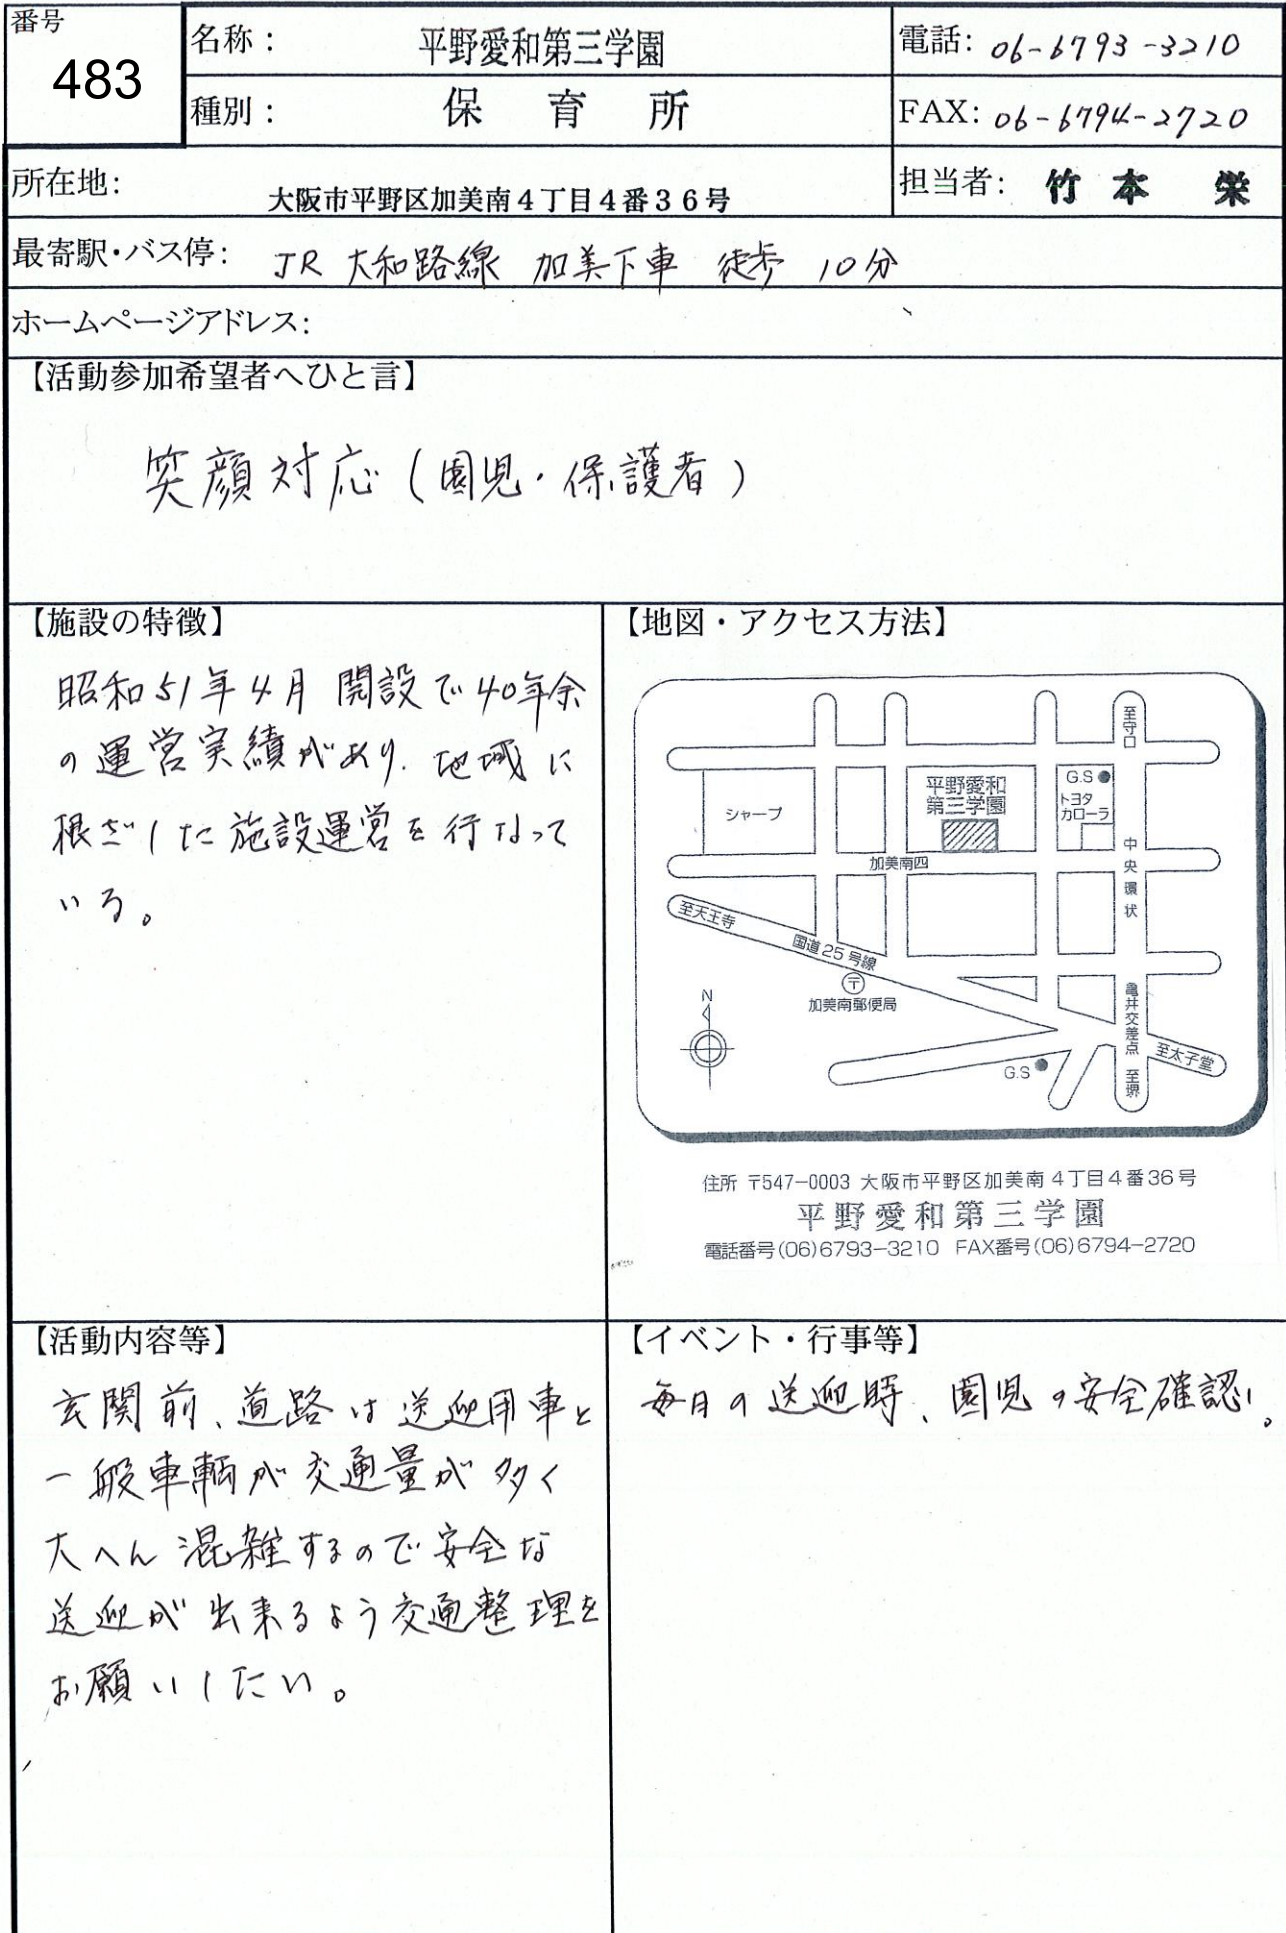 番号
483
名称：　平野愛和第三学園
電話: 06-6793-3210
種別：　保　育　所
FAX: 06-6794-2720
所在地:　大阪市平野区加美南４丁目４番３６号
担当者:　竹　本　　栄
最寄駅・バス停:　JR 大和路線　加美下車　徒歩　10分
ホームページアドレス:
【活動参加希望者へひと言】
笑顔対応（園児・保護者）
【施設の特徴】
昭和51年4月 開設で40年余
の運営実績があり、地域に
根ざした施設運営を行なって
いる。
【地図・アクセス方法】
至守口
G.S
トヨタ
カローラ
平野愛和
第三学園
シャープ
加美南四
中央環状
至天王寺
国道25号線
〒
加美南郵便局
N
亀井交差点
至太子堂
至堺
G.S
住所 〒547-0003 大阪市平野区加美南4丁目4番36号
平野愛和第三学園
電話番号(06)6793-3210 FAX番号(06)6794-2720
【活動内容等】
玄関前、道路は送迎用車と
一般車輌が交通量が多く
大へん混雑するので安全な
送迎が出来るよう交通整理を
お願いしたい。
【イベント・行事等】
毎日の送迎時、園児の安全確認。